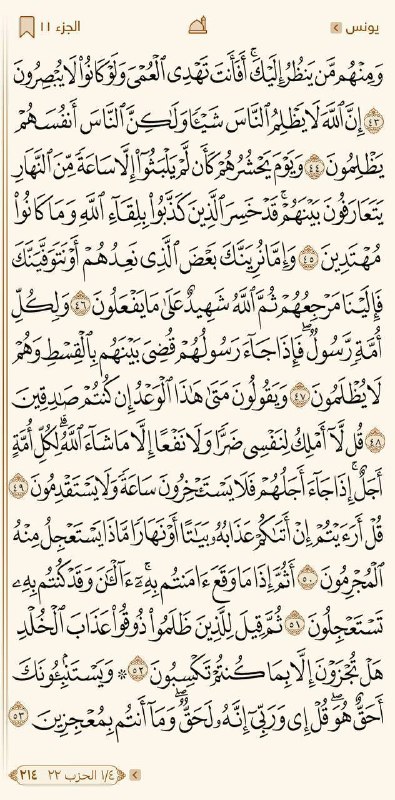 يونس الجزء ١١
وَمِنْهُم مَّن يَنظُرُ إِلَيْكَ ۚ أَفَأَنتَ تَهْدِى ٱلْعُمْىَ وَلَوْ كَانُوا۟ لَا يُبْصِرُونَ
٤٣ إِنَّ ٱللَّهَ لَا يَظْلِمُ ٱلنَّاسَ شَيْـًٔا وَلَـٰكِنَّ ٱلنَّاسَ أَنفُسَهُمْ
يَظْلِمُونَ ٤٤ وَيَوْمَ يَحْشُرُهُمْ كَأَن لَّمْ يَلْبَثُوٓا۟ إِلَّا سَاعَةً مِّنَ ٱلنَّهَارِ
يَتَعَارَفُونَ بَيْنَهُمْ ۚ قَدْ خَسِرَ ٱلَّذِينَ كَذَّبُوا۟ بِلِقَآءِ ٱللَّهِ وَمَا كَانُوا۟
مُهْتَدِينَ ٤٥ وَإِمَّا نُرِيَنَّكَ بَعْضَ ٱلَّذِى نَعِدُهُمْ أَوْ نَتَوَفَّيَنَّكَ
فَإِلَيْنَا مَرْجِعُهُمْ ثُمَّ ٱللَّهُ شَهِيدٌ عَلَىٰ مَا يَفْعَلُونَ ٤٦ وَلِكُلِّ
أُمَّةٍ رَّسُولٌ ۖ فَإِذَا جَآءَ رَسُولُهُمْ قُضِىَ بَيْنَهُم بِٱلْقِسْطِ وَهُمْ
لَا يُظْلَمُونَ ٤٧ وَيَقُولُونَ مَتَىٰ هَـٰذَا ٱلْوَعْدُ إِن كُنتُمْ صَـٰدِقِينَ
٤٨ قُل لَّآ أَمْلِكُ لِنَفْسِى ضَرًّا وَلَا نَفْعًا إِلَّا مَا شَآءَ ٱللَّهُ ۗ لِكُلِّ أُمَّةٍ
أَجَلٌ ۚ إِذَا جَآءَ أَجَلُهُمْ فَلَا يَسْتَـْٔخِرُونَ سَاعَةً وَلَا يَسْتَقْدِمُونَ ٤٩
قُلْ أَرَءَيْتُمْ إِنْ أَتَىٰكُمْ عَذَابُهُۥ بَيَـٰتًا أَوْ نَهَارًا مَّاذَا يَسْتَعْجِلُ مِنْهُ
ٱلْمُجْرِمُونَ ٥٠ أَثُمَّ إِذَا مَا وَقَعَ ءَامَنتُم بِهِۦٓ ۚ ءَآلْـَٔـٰنَ وَقَدْ كُنتُم بِهِۦ
تَسْتَعْجِلُونَ ٥١ ثُمَّ قِيلَ لِلَّذِينَ ظَلَمُوا۟ ذُوقُوا۟ عَذَابَ ٱلْخُلْدِ
هَلْ تُجْزَوْنَ إِلَّا بِمَا كُنتُمْ تَكْسِبُونَ ٥٢ ۞ وَيَسْتَنۢبِـُٔونَكَ
أَحَقٌّ هُوَ ۖ قُلْ إِى وَرَبِّىٓ إِنَّهُۥ لَحَقٌّ ۖ وَمَآ أَنتُم بِمُعْجِزِينَ ٥٣
١/٤ الحزب ٢٢ ٢١٤